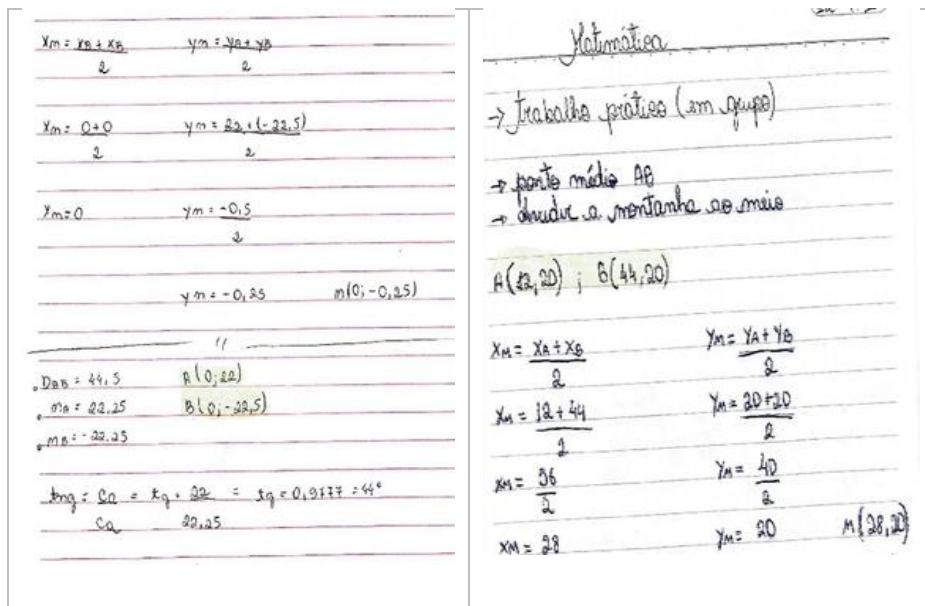 xm = xA + xB / 2 ym = yA + yB / 2
xm = 0+0 / 2 ym = 22 + (-22,5) / 2
xm = 0 ym = -0,5 / 2
ym = -0,25 m(0; -0,25)
DAB = 44,5 A(0;22)
mA = 22,25 B(0;-22,5)
mB = -22,25
tng = Co / Ca = tg = 22 / 22,25 = tg = 0,9777 = 44°
Matimática
→ trabalho prático (em grupo)
→ ponto médio AB
→ dividir a montanha ao meio
A(12,20) ; B(44,20)
XM = XA + XB / 2 YM = YA + YB / 2
XM = 12 + 44 / 2 YM = 20+20 / 2
XM = 56 / 2 YM = 40 / 2
XM = 28 YM = 20 M(28,20)